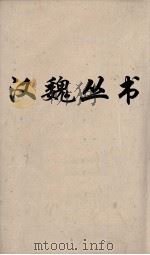 汉魏丛书
www.mtoou.info